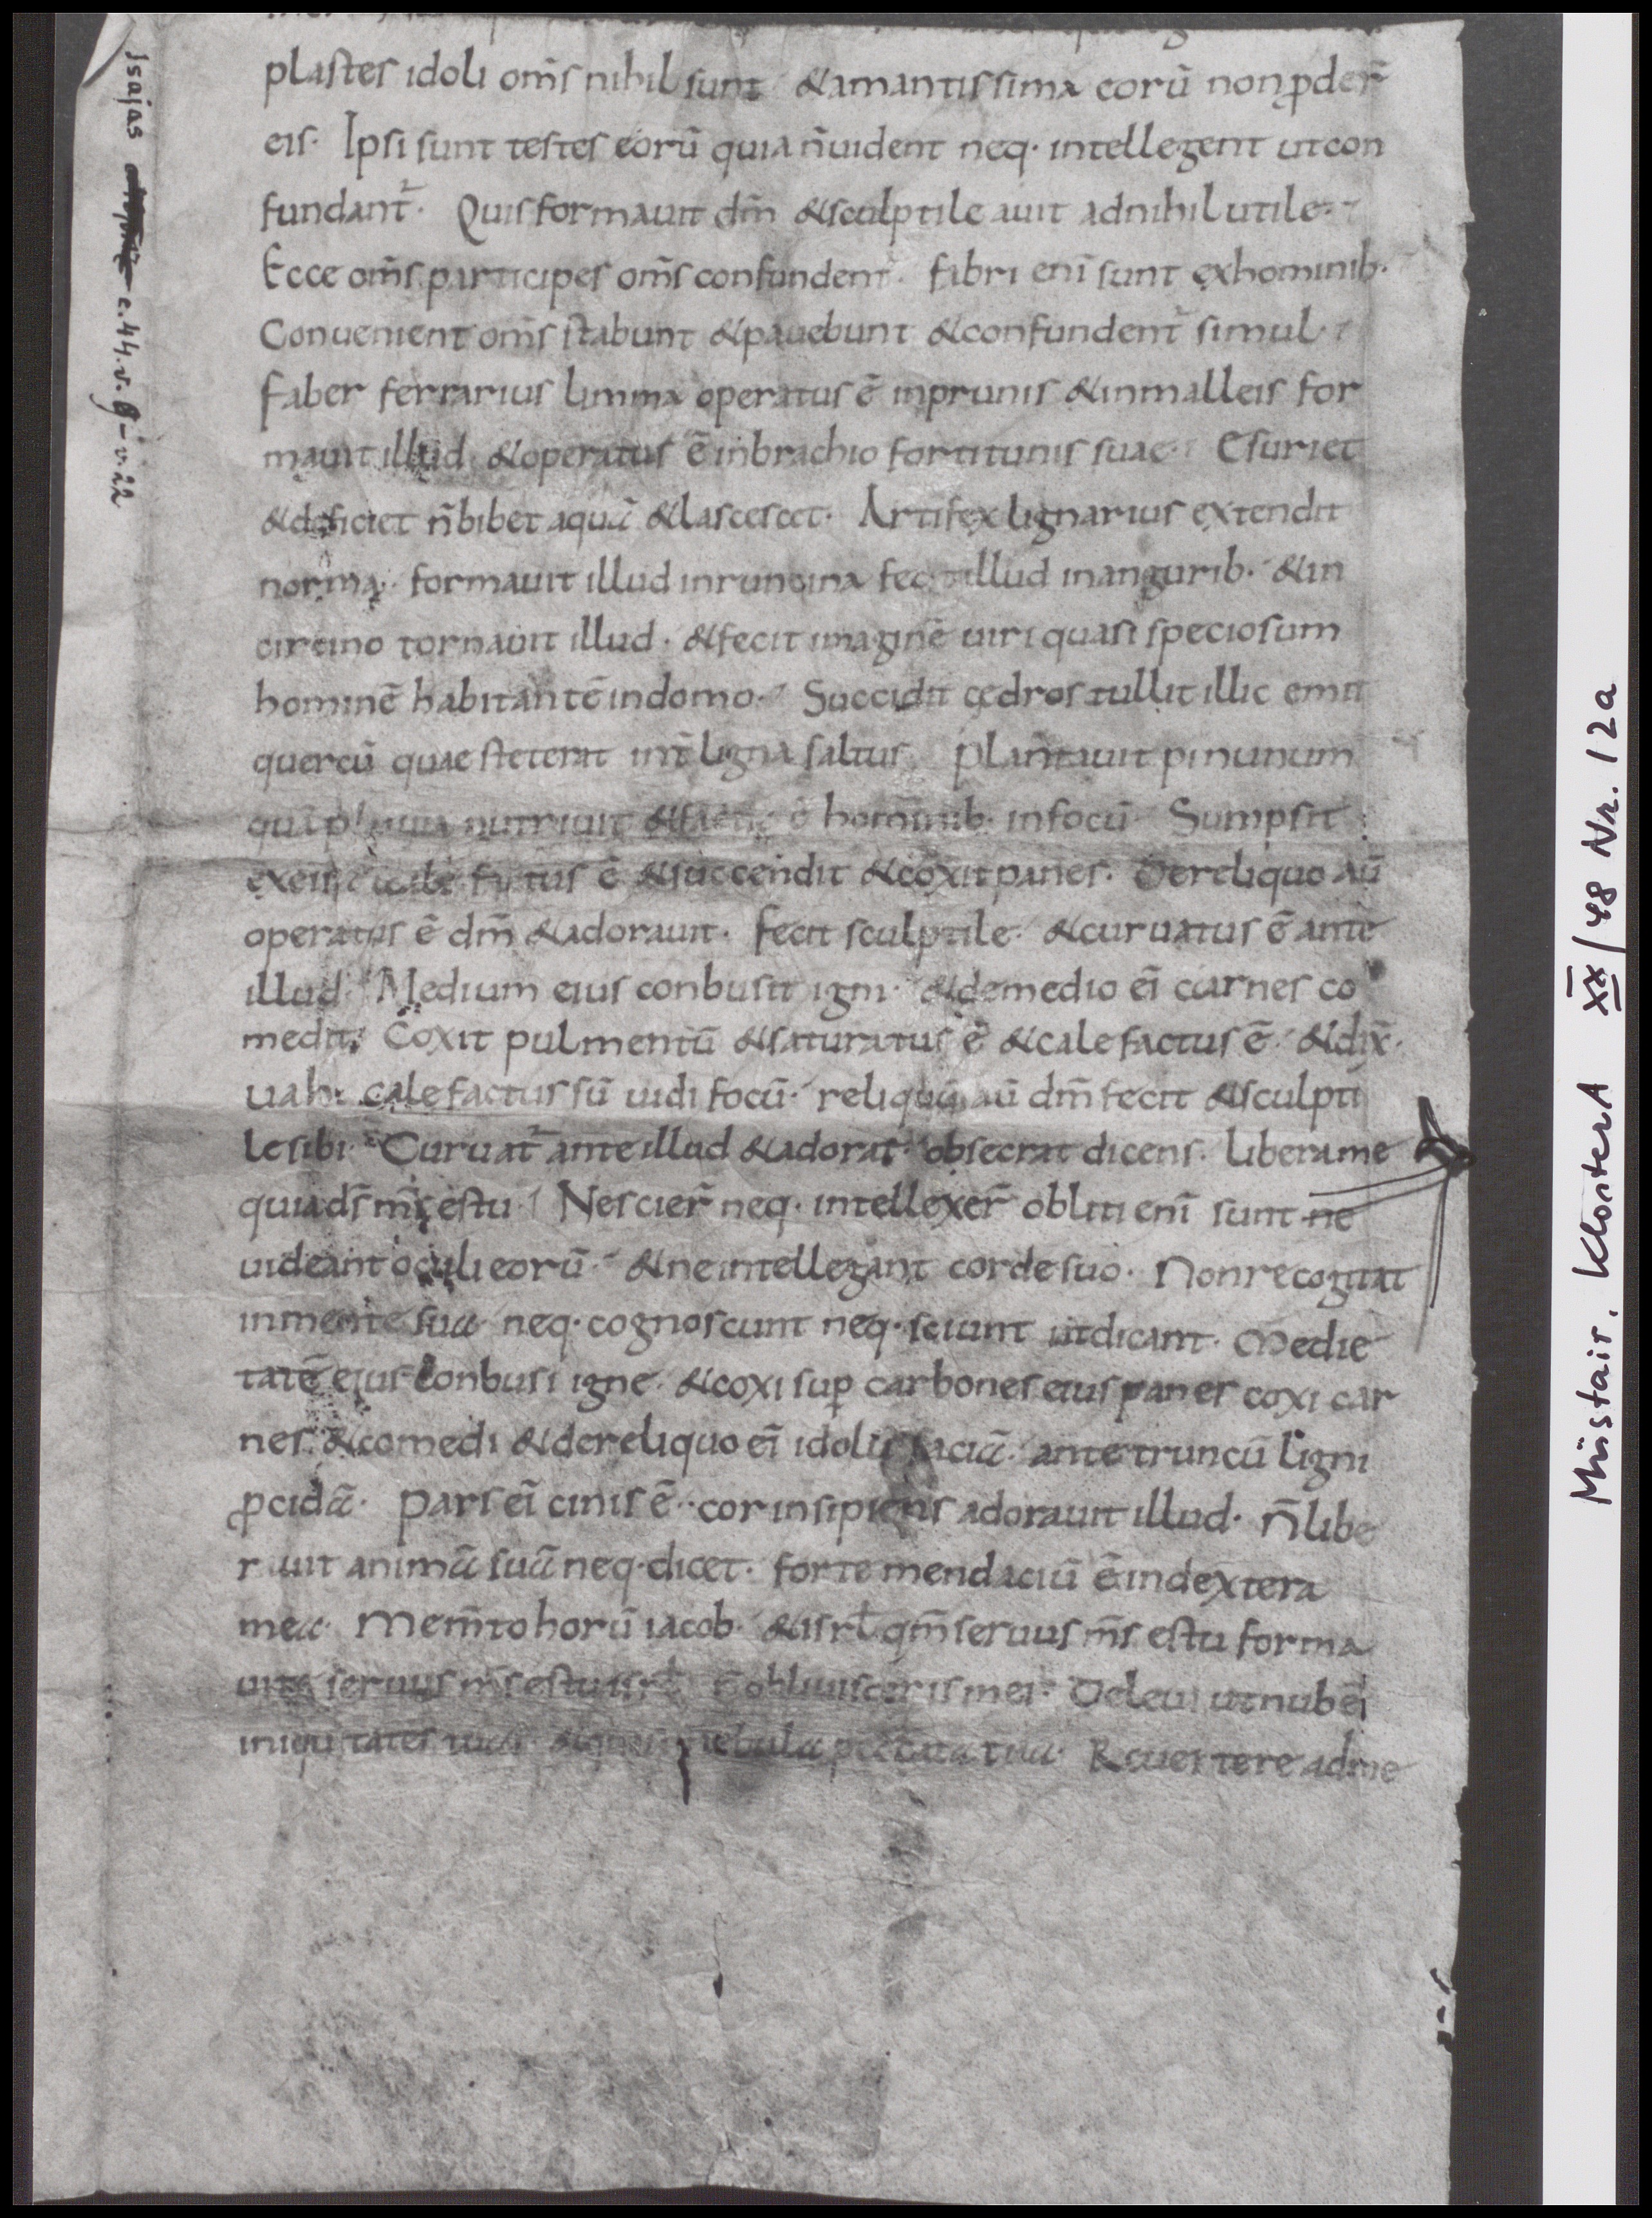 plastes idoli om̄s nihil sunt &amantissima eorū non ꝓder̄
eis· Ipsi sunt testes eorū quia n̄uident neq· intellegent utcon
fundant᷑· Quis formauit dm̄ &sculptile auit adnihil utile·
Ecce om̄s participes om̄s confundent᷑· fabri enī sunt exhominib·
Conuenient om̄s stabunt &pauebunt &confundent᷑ simul·
faber ferrarius limma operatus ē inprunis &inmalleis for
mauit illud· &operatus ē inbrachio fortitunis suae· Esuriet
&deficiet n̄bibet aquā &lascescet· Artifex lignarius extendit
norma· formauit illud inruncina fecit illud inangurib· &in
circino tornauit illud· &fecit imaginē uiri quasi speciosum
hominē habitantē indomo· Succidit cedros tullit illic emit
quercū quae steterat int̄ ligna saltus· plantauit pinunum
quā pluuia nutriuit ē hominib· infocū· Sumpsit
exeis ē &succendit &coxit panes· Dereliquo aū
operatus ē dm̄ &adorauit· fecit sculptile· &curuatus ē ante
illud· Medium eius conbusit igni· &demedio eī carnes co
medit· Coxit pulmentū &saturatus ē &calefactus ē· &dix̄·
uah· calefactus sū uidi focū· reliquū aū dm̄ fecit &sculpti
le sibi· Curuat᷑ ante illud &adorat· obsecrat dicens· libera me
quia ds̄ ms̄ estu· Nescier̄ neq· intellexer̄ obliti enī sunt ne
uideant oculi eorū· &ne intellegant corde suo· Non recogitat
inmente sua neq· cognoscunt neq· sciunt utdicant· Medie
tatē eius conbusi igne· &coxi suꝑ carbones eius panes coxi car
nes· &comedi &dereliquo eī idolū faciā· ante truncū ligni
ꝓcidā· pars eī cinis ē· cor insipiens adorauit illud· n̄ libe
r uit animā suā neq· dicet· forte mendaciū ē indextera
mea· Mem̄to horū iacob· &isrł qm̄ seruus ms̄ estu forma
uite seruus ms̄ estu isrł obliuisceris mei· Deleui utnubē
iniquitates tuas nebulā peccata tua· Reuertere adme
Isajas c. 44. v. 9 - v. 22
Müstair, Kloster A XX/48 Nr. 12a